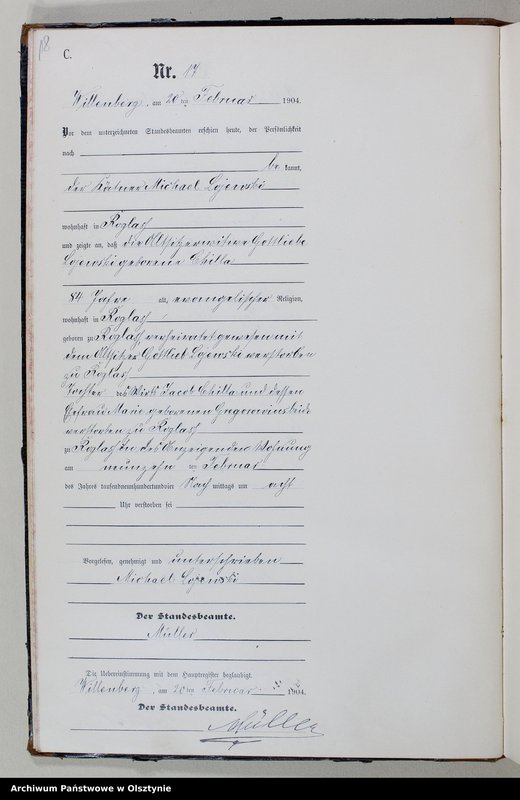 18
C.
Nr. 17
Willenberg, am 20ten Februar 1904.
Vor dem unterzeichneten Standesbeamten erschien heute, der Persönlichkeit
nach
be kannt,
der Kätner Michael Lojewski
wohnhaft in Röglas
und zeigte an, daß die Altsitzerwitwe Gottliebe
Lojewski geborene Chilla
84 Jahre alt, evangelischer Religion,
wohnhaft in Röglas
geboren zu Röglas, verheiratet gewesen mit
dem Altsitzer Gottlieb Lojewski verstorben
zu Röglas
Tochter des Wirts Jacob Chilla und dessen
Ehefrau Marie geborenen
verstorben zu Röglas
zu Röglas in des Anzeigenden Wohnung
am neunzehn ten Februar
des Jahres tausendneunhundertundvier Nach mittags um acht
Uhr verstorben sei
Vorgelesen, genehmigt und unterschrieben
Michael Lojewski
Der Standesbeamte.
Müller
Die Uebereinstimmung mit dem Hauptregister beglaubigt.
Willenberg, am 20ten Februar 1904.
Der Standesbeamte.
Müller
Archiwum Państwowe w Olsztynie